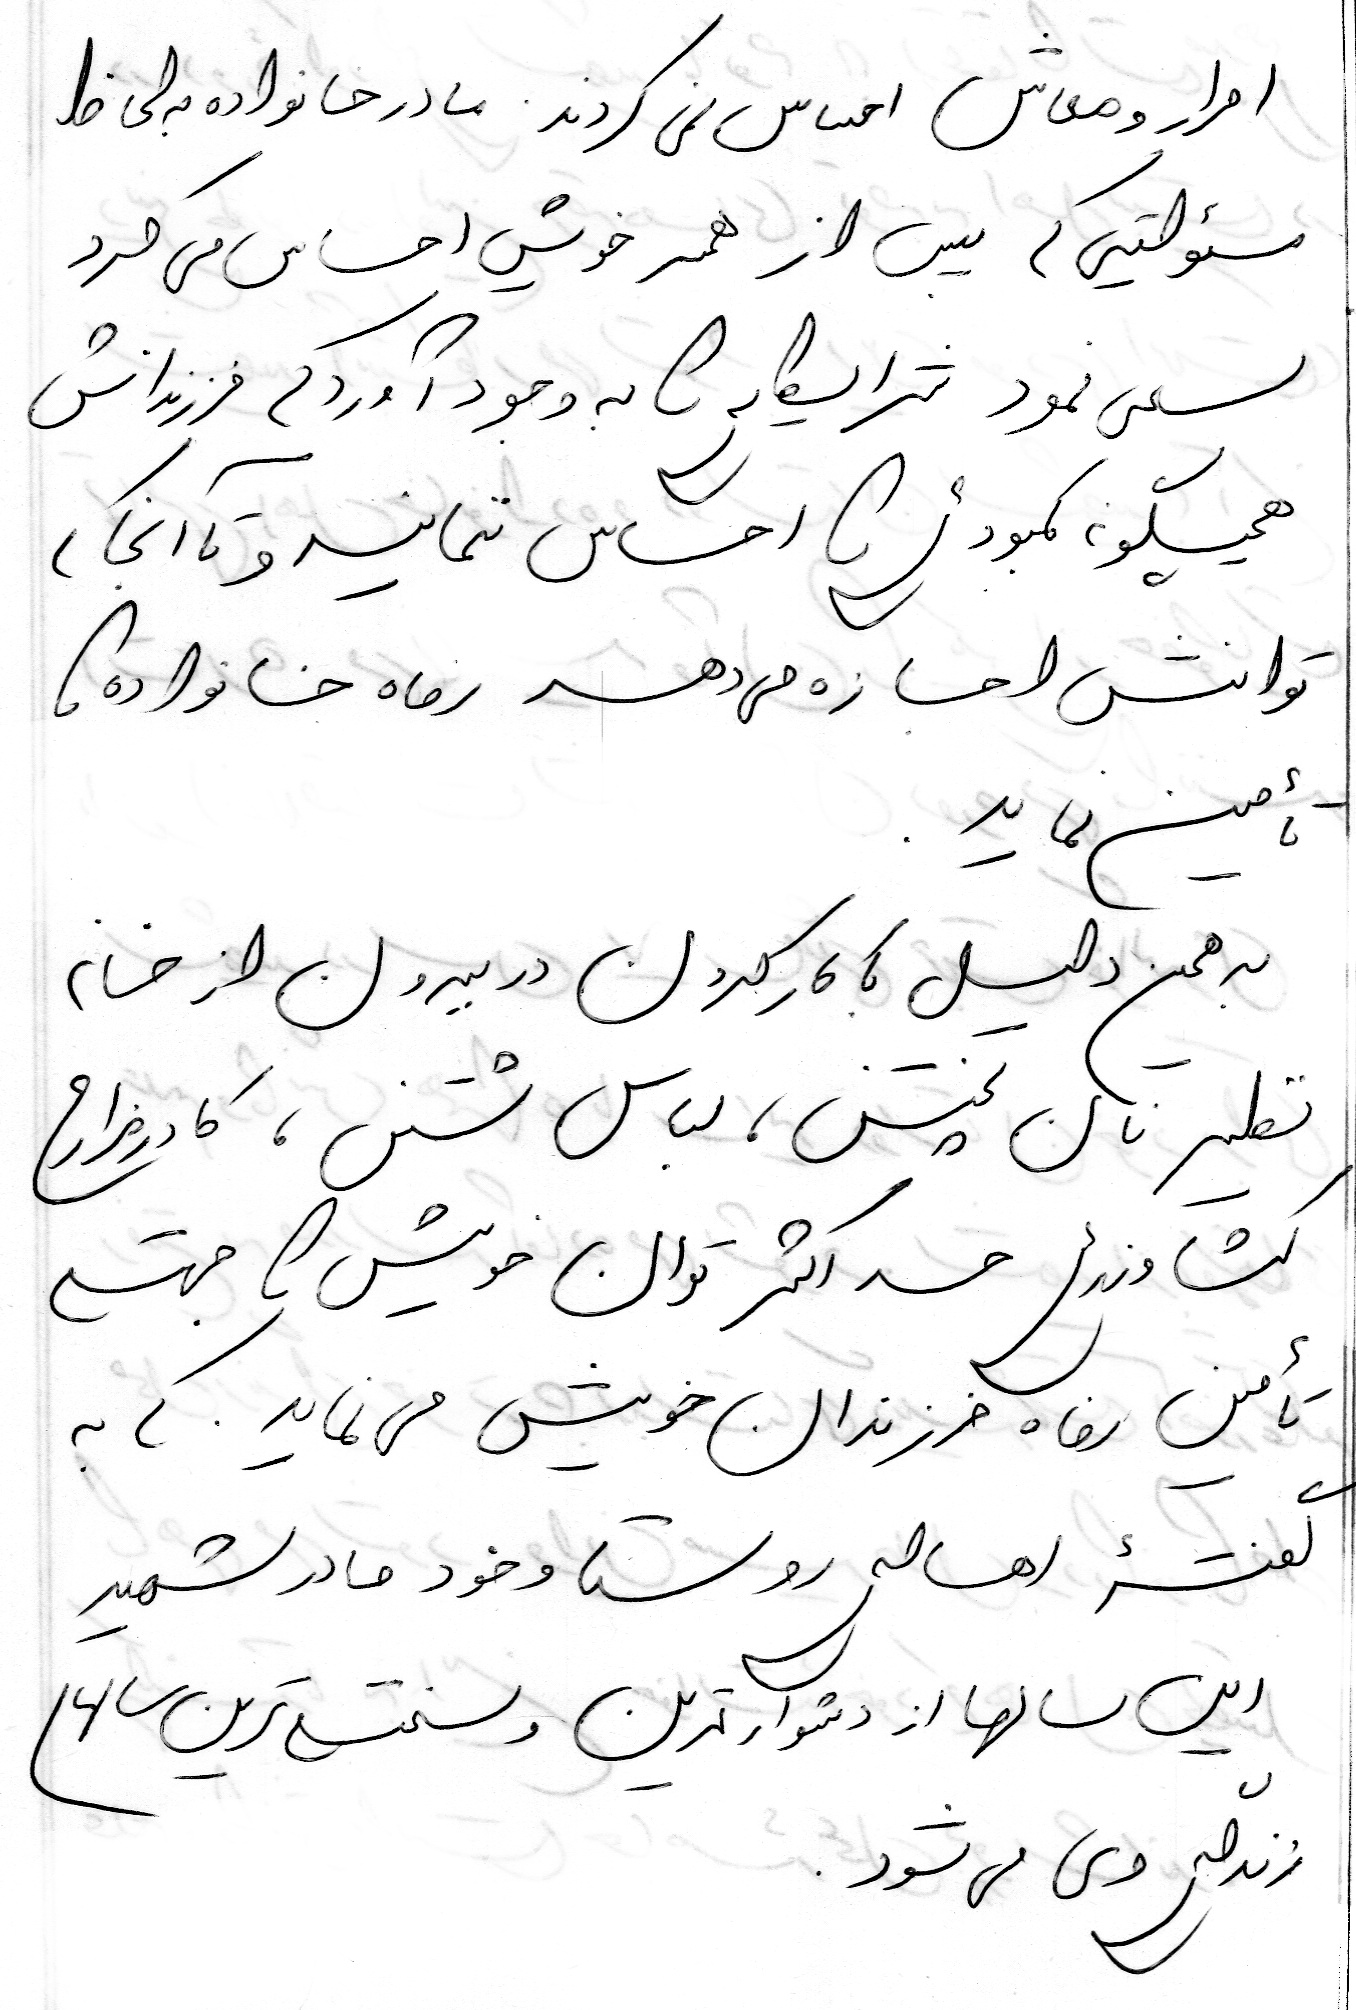 امرار و معاش احساس نمی کردند. مادر خانواده به لحاظ
مسئولیتی که پس از همسر خویش احساس می کرد
سعی نمود شرایطی را به وجود آورد که فرزندانش
هیچگونه کمبودی را احساس ننمایند و تا آنجا که
توانش اجازه می دهد رفاه خانواده را
تأمین نماید.
به همین دلیل با کار کردن در بیرون از خانه
نظیر نان پختن، لباس شستن، کار در مزارع
کشاورزی حداکثر توان خویش را جهت
تأمین رفاه فرزندان خویش می نماید. که به
گفتۀ اهالی روستا و خود مادر شهید
این سالها از دشوارترین و سخت ترین سالهای
زندگی وی می شود.